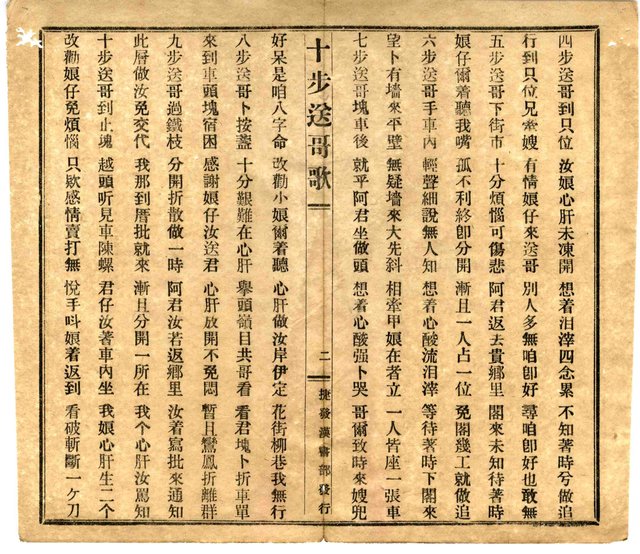 四步送哥到只位 汝娘心肝未凍開 想着泪滓四念累 不知著時兮做追
行到只位兄索嫂 有情娘仔來送哥 別人多無咱卽好 尋咱卽好也敢無
五步送哥下街市 十分煩惱可傷悲 阿君返去貴鄉里 閣來未知待著時
娘仔爾着聽我嘴 孤不利終卽分開 漸且一人占一位 免閣幾工就做追
六步送哥手車內 輕聲細說無人知 想着心酸流泪滓 等待著時下閣來
望卜有墻來平壁 無疑墻來大先斜 相牽甲娘在者立 一人皆座一張車
七步送哥塊車後 就平阿君坐做頭 想着心酸强卜哭 哥爾致時來嫂兜
十步送哥歌 二 捷發漢書部發行
好呆是咱八字命 改勸小娘爾着聽 心肝做汝岸伊定 花街柳巷我無行
八步送哥卜按盞 十分艱難在心肝 舉頭嶺目共哥看 看君塊卜折車單
來到車頭塊宿困 感謝娘仔汝送君 心肝放開不免悶 暫且鸞鳳折離群
九步送哥過鐵枝 分開折散做一時 阿君汝若返鄉里 汝着寫批來通知
此層做汝免交代 我那到厝批就來 漸且分開一所在 我个心肝汝罵知
十步送哥到止塊 越頭听見車陳螺 君仔汝著車內坐 我娘心肝生二个
改勸娘仔免煩惱 只欺感情賣打無 悅手呌娘着返到 看破斬斷一ケ刀